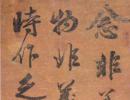 念非
物非
時作之